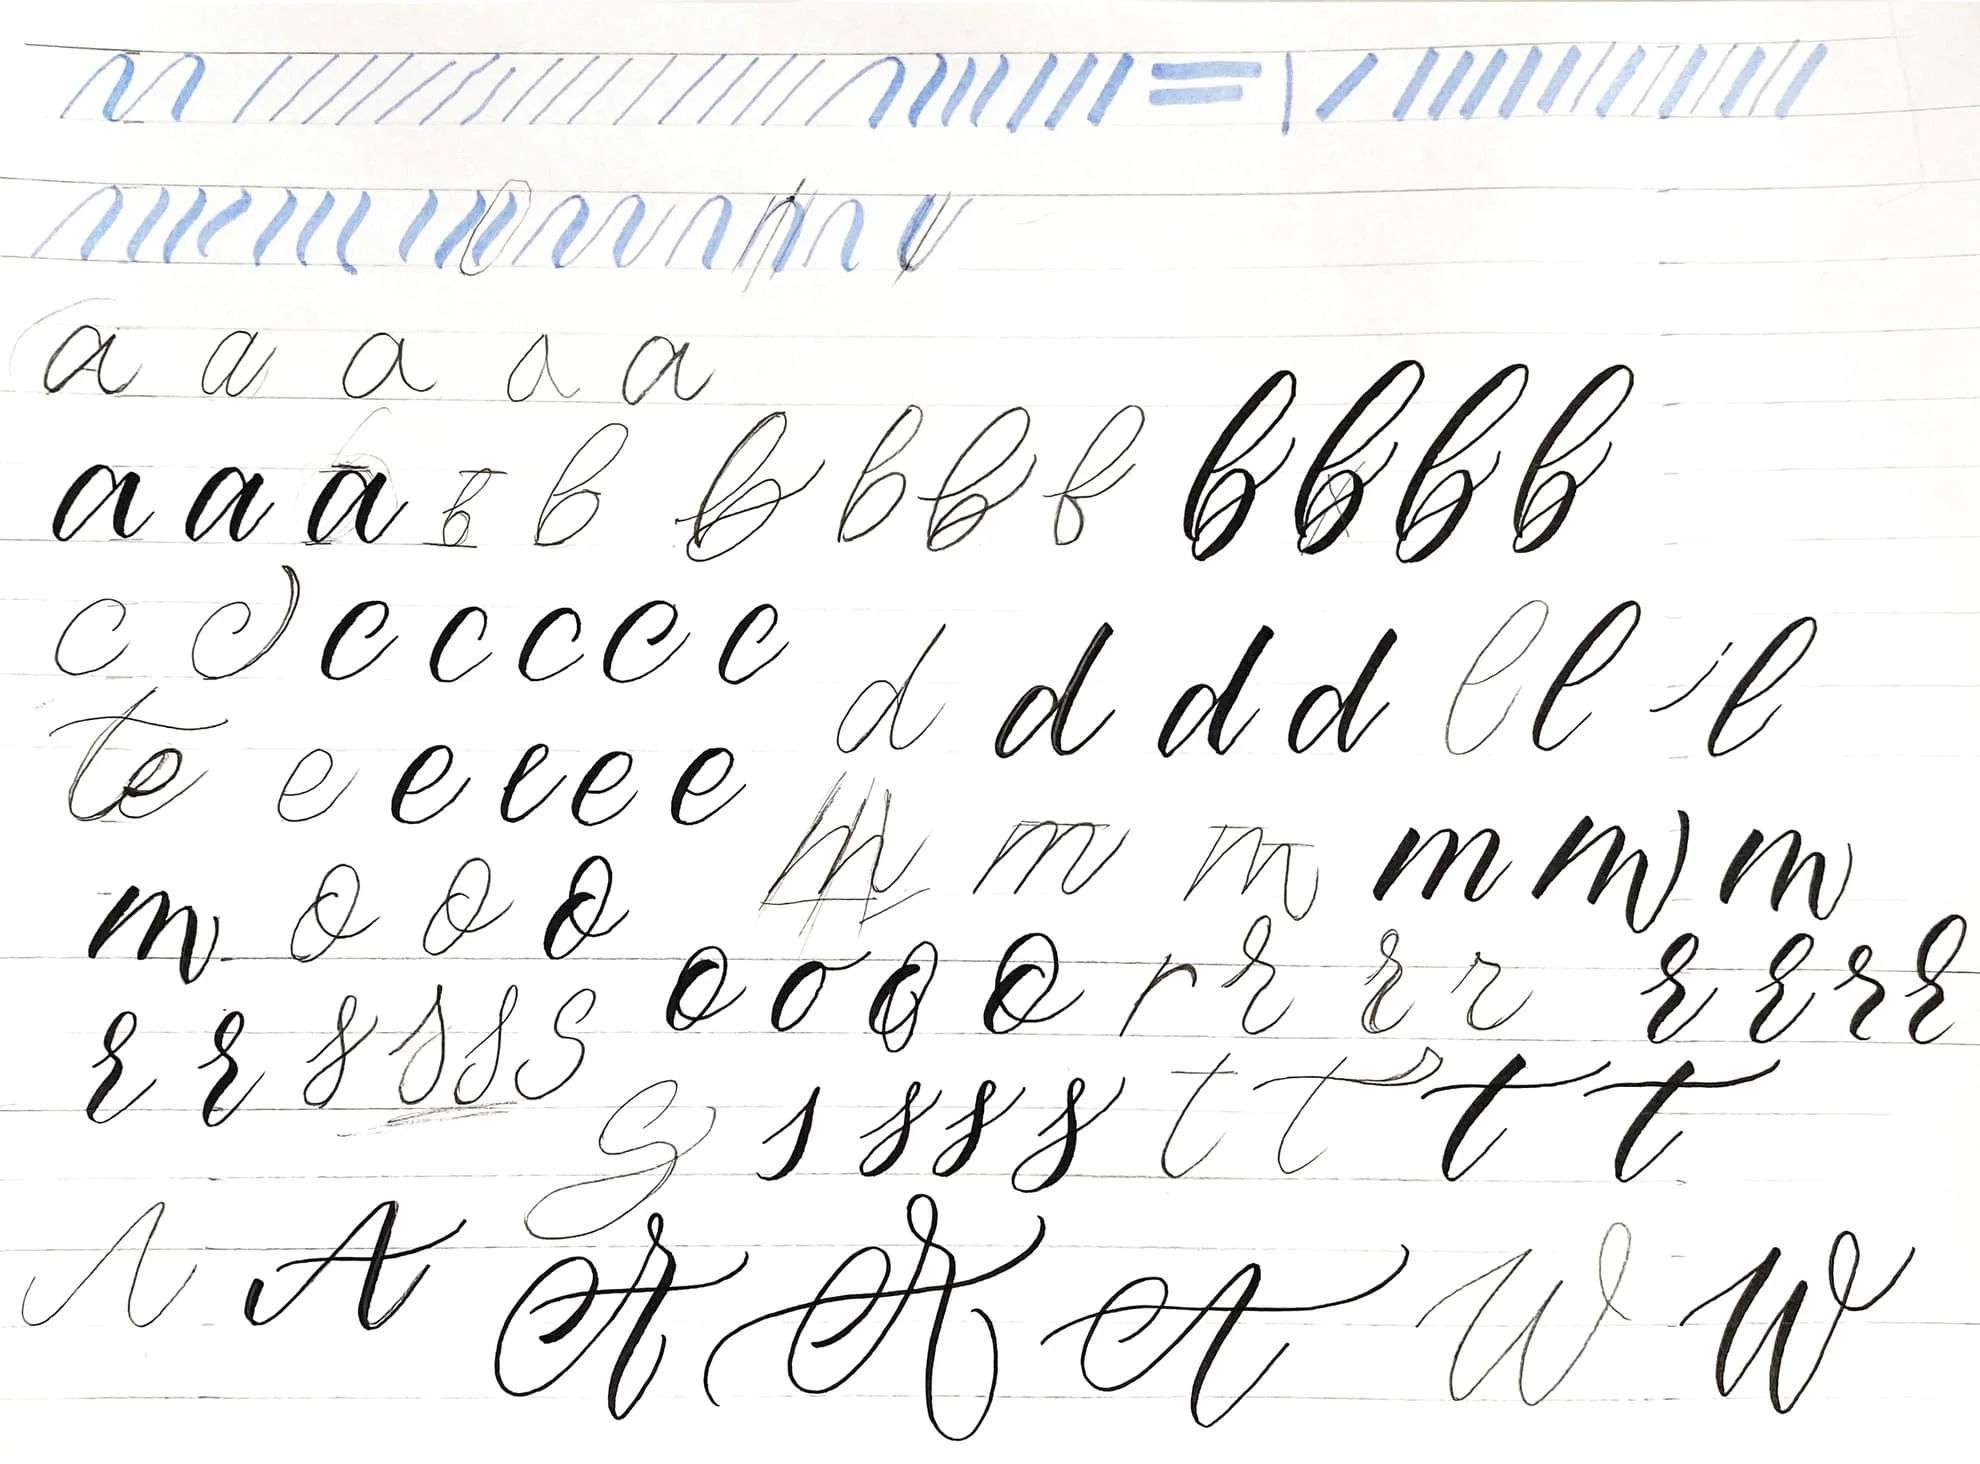 a a a a a
a a a b b b b b b b b b b
c c c c c c c d d d d l l l
t e e e e e e m m m m m m
m o o o o o o o r r r r r r r r
r r s s s s s s s s s t t t t
A A A A A W W